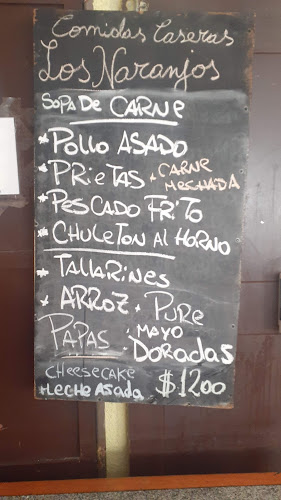 Comidas Caseras
Los Naranjos
SOPA DE CARNE
* POLLO ASADO
* PRIETAS * CARNE MECHADA
* PESCADO FRITO
* CHULETON Al HORNO
* TALLARINES
* ARROZ * PURE
PAPAS * MAYO
DORADAS
CHEESECAKE
+ LECHE ASADA $1200